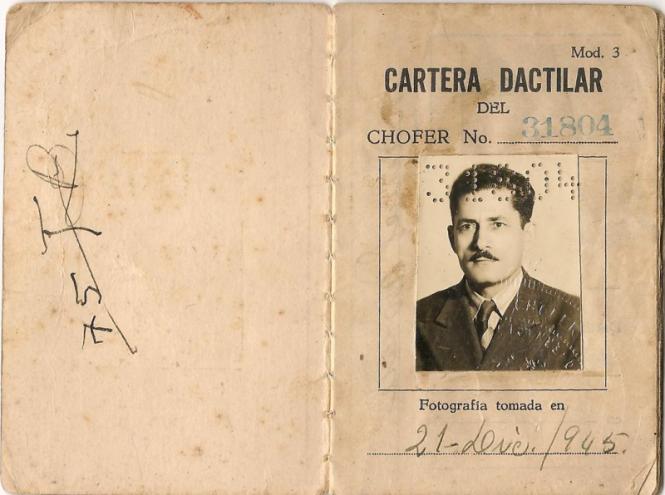 Mod. 3
CARTERA DACTILAR
DEL
CHOFER No. 31804
31804
Fotografía tomada en
21-Dic./945.